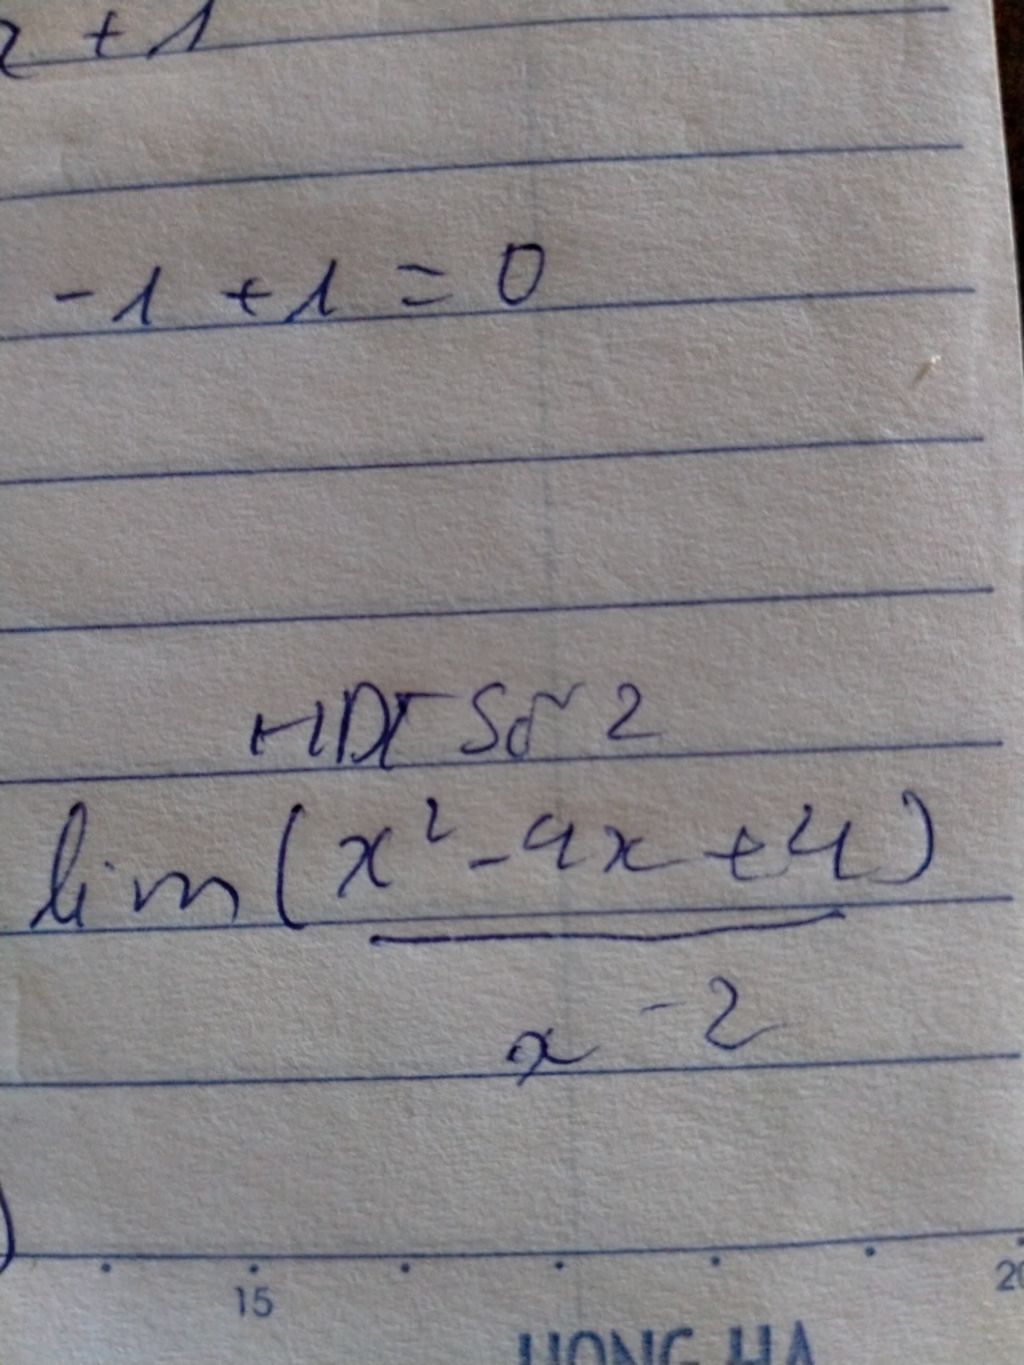 2 + 1
-1 + 1 = 0
HDT Số 2
lim (x² - 4x + 4)
x - 2
)
15 20
HONG HA